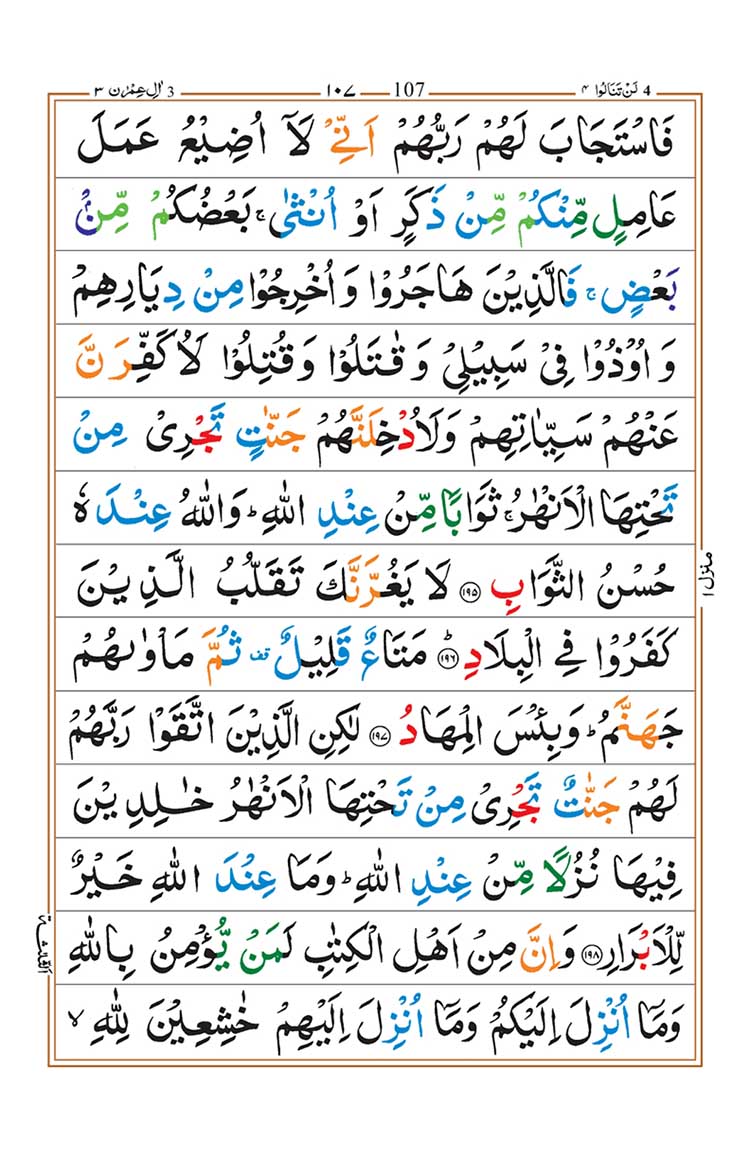 3 اٰلِ عِمْرٰن ٣ — ١٠٧ — 107 — 4 لَنْ تَنَالُوا ٤
فَاسْتَجَابَ لَهُمْ رَبُّهُمْ اَنِّیْ لَاۤ اُضِیْعُ عَمَلَ
عَامِلٍ مِّنْكُمْ مِّنْ ذَكَرٍ اَوْ اُنْثٰی ۚ بَعْضُكُمْ مِّنْۢ
بَعْضٍ ۚ فَالَّذِیْنَ هَاجَرُوْا وَ اُخْرِجُوْا مِنْ دِیَارِهِمْ
وَ اُوْذُوْا فِیْ سَبِیْلِیْ وَ قٰتَلُوْا وَ قُتِلُوْا لَاُكَفِّرَنَّ
عَنْهُمْ سَیِّاٰتِهِمْ وَلَاُدْخِلَنَّهُمْ جَنّٰتٍ تَجْرِیْ مِنْ
تَحْتِهَا الْاَنْهٰرُ ۚ ثَوَابًا مِّنْ عِنْدِ اللّٰهِ ؕ وَاللّٰهُ عِنْدَهٗ
حُسْنُ الثَّوَابِ ﴿١٩٥﴾ لَا یَغُرَّنَّكَ تَقَلُّبُ الَّذِیْنَ
كَفَرُوْا فِی الْبِلَادِ ﴿١٩٦﴾ؕ مَتَاعٌ قَلِیْلٌ ۫ ثُمَّ مَاْوٰىهُمْ
جَهَنَّمُ ؕ وَبِئْسَ الْمِهَادُ ﴿١٩٧﴾ لٰكِنِ الَّذِیْنَ اتَّقَوْا رَبَّهُمْ
لَهُمْ جَنّٰتٌ تَجْرِیْ مِنْ تَحْتِهَا الْاَنْهٰرُ خٰلِدِیْنَ
فِیْهَا نُزُلًا مِّنْ عِنْدِ اللّٰهِ ؕ وَمَا عِنْدَ اللّٰهِ خَیْرٌ
لِّلْاَبْرَارِ ﴿١٩٨﴾ وَاِنَّ مِنْ اَهْلِ الْكِتٰبِ لَمَنْ یُّؤْمِنُ بِاللّٰهِ
وَمَاۤ اُنْزِلَ اِلَیْكُمْ وَمَاۤ اُنْزِلَ اِلَیْهِمْ خٰشِعِیْنَ لِلّٰهِ ۙ
منزل ١
الثلثة